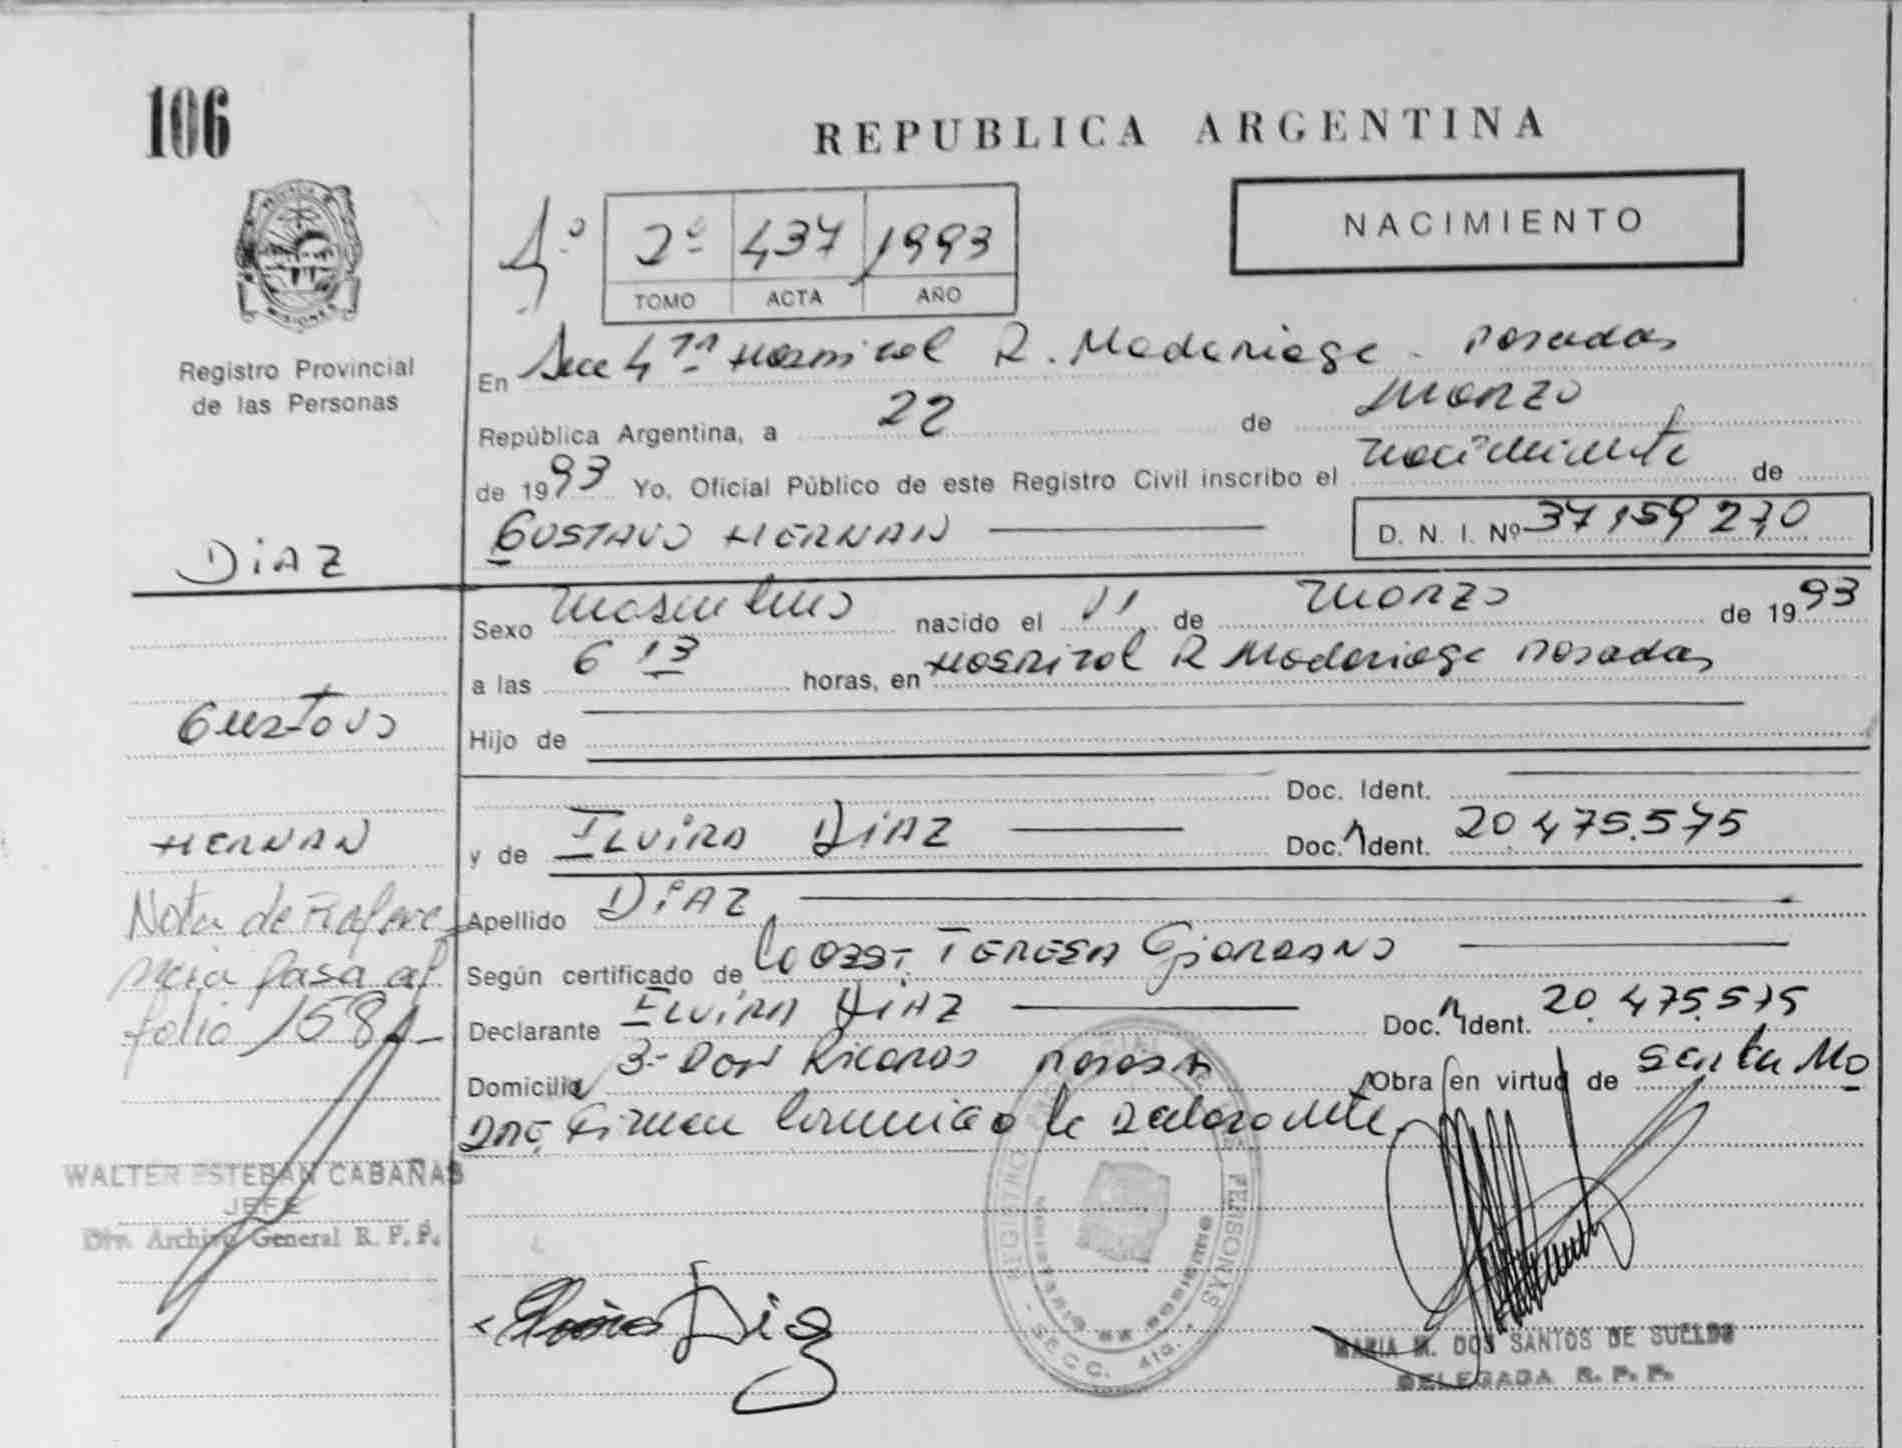 106
REPUBLICA ARGENTINA
NACIMIENTO
4º 2º 437 1993
TOMO ACTA AÑO
PROVINCIA DE MISIONES
Registro Provincial
de las Personas
En Secc 4ta Hospital R. Madariaga - Posadas
República Argentina, a 22 de Marzo
de 1993 Yo, Oficial Público de este Registro Civil inscribo el nacimiento de
GUSTAVO HERNAN D. N. I. Nº 37159270
DIAZ
Sexo masculino nacido el 11 de Marzo de 1993
a las 6 13 horas, en Hospital R Madariaga Posadas
Gustavo
Hijo de
Doc. Ident.
HERNAN
y de ELVIRA DIAZ Doc. Ident. 20.475.575
Nota de Refere
ncia pasa al
folio 158
Apellido DIAZ
Según certificado de la Obst. TERESA Giordano
Declarante ELVIRA DIAZ Doc. Ident. 20.475.575
Domicilio Obra en virtud de
firman conmigo la declarante
WALTER ESTEBAN CABAÑAS
JEFE
Div. Archivo General R. P. P.
Elvira Diaz
REGISTRO PROVINCIAL DE LAS PERSONAS
MINISTERIO DE GOBIERNO
SECC. 4ta.
MARIA M. DOS SANTOS DE SUELDO
DELEGADA R. P. P.